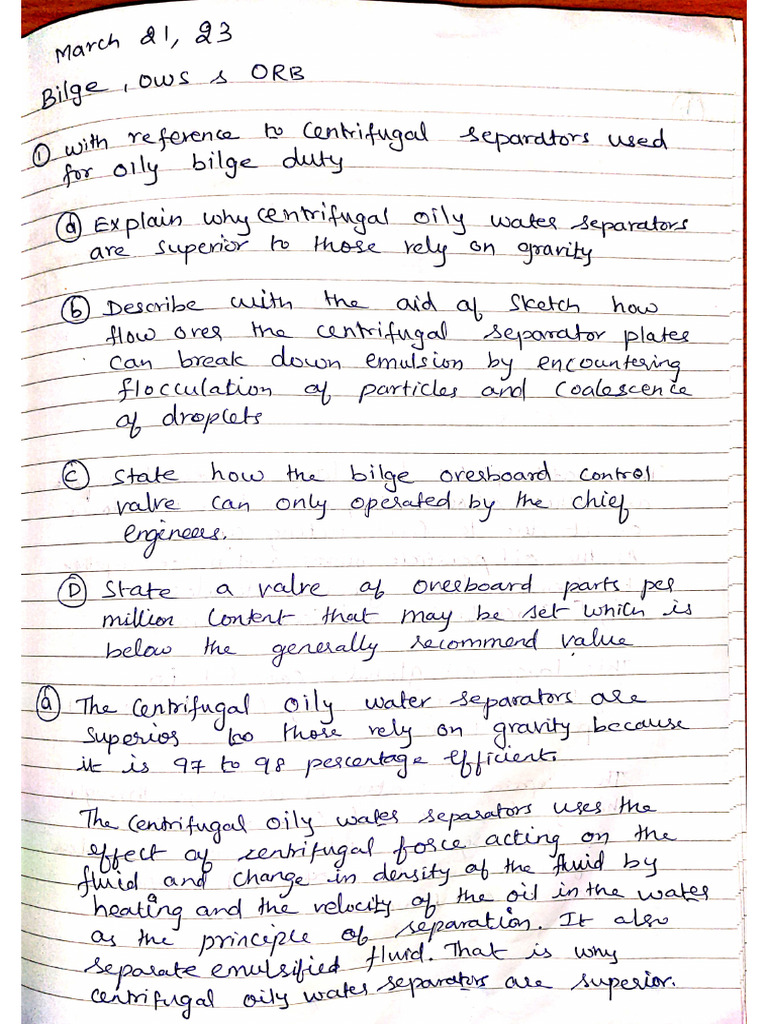 March 21, 23
Bilge, OWS & ORB
① with reference to centrifugal separators used
for oily bilge duty
ⓐ Explain why centrifugal oily water separators
are superior to those rely on gravity
ⓑ Describe with the aid of sketch how
flow over the centrifugal separator plates
can break down emulsion by encountering
flocculation of particles and coalescence
of droplets
ⓒ State how the bilge overboard control
valve can only operated by the chief
engineer.
Ⓓ State a valve of overboard parts per
million content that may be set which is
below the generally recommend value
ⓐ The centrifugal oily water separators are
superior to those rely on gravity because
it is 97 to 98 percentage efficient.
The centrifugal oily water separators uses the
effect of centrifugal force acting on the
fluid and change in density of the fluid by
heating and the velocity of the oil in the water
as the principle of separation. It also
separate emulsified fluid. That is why
centrifugal oily water separators are superior.